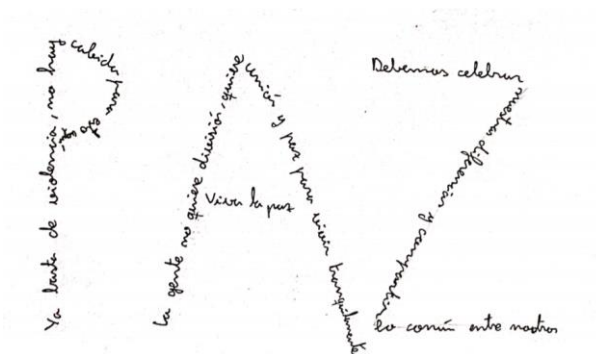 Ya basta de violencia, no hay cabida para
La gente no quiere división, quiere unión y paz para vivir tranquilamente
Viva la paz
Debemos celebrar
nuestras diferencias y compartir
lo común entre nosotros